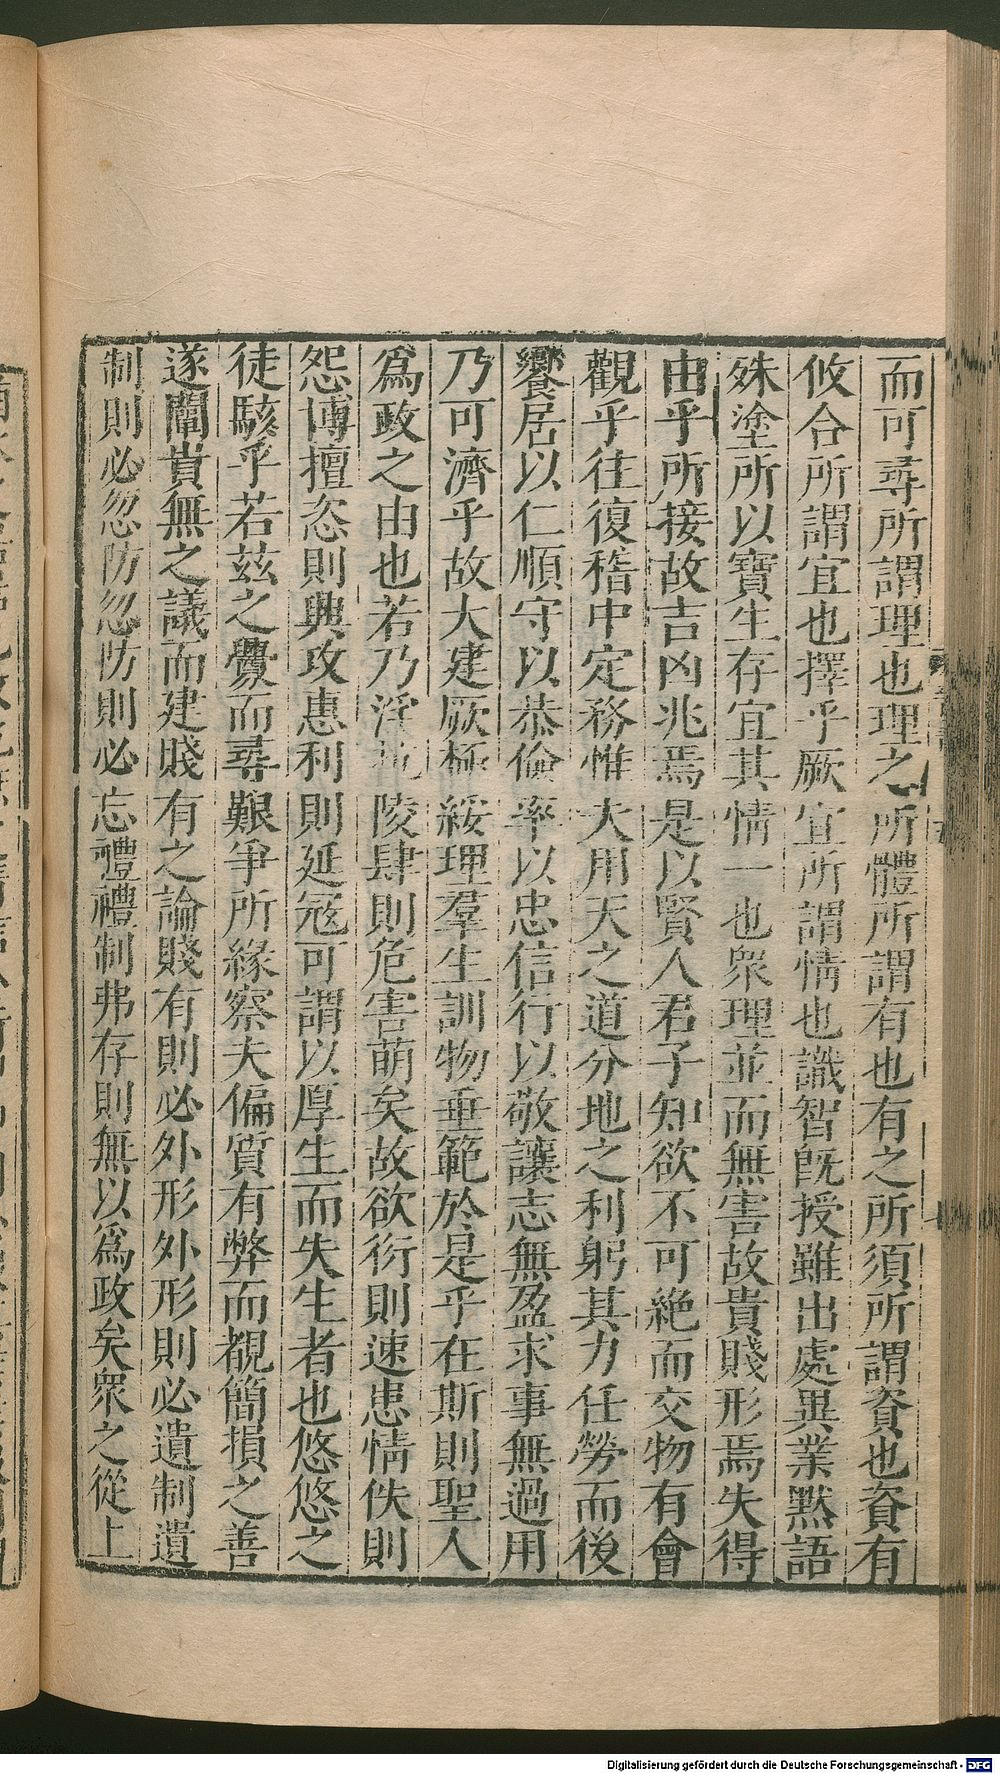 而可尋所謂理也理之所體所謂有也有之所須所謂資也資有
攸合所謂宜也擇乎厥宜所謂情也識智旣授雖出處異業黙語
殊塗所以寶生存宜其情一也衆理並而無害故貴賤形焉失得
由乎所接故吉凶兆焉是以賢人君子知欲不可絶而交物有會
觀乎往復稽中定務惟大用天之道分地之利躬其力任勞而後
饗居以仁順守以恭儉率以忠信行以敬讓志無盈求事無過用
乃可濟乎故大建厥極綏理羣生訓物垂範於是乎在斯則聖人
爲政之由也若乃淫抗陵肆則危害萌矣故欲衍則速患情佚則
怨博擅恣則興攻專利則延冦可謂以厚生而失生者也悠悠之
徒駭乎若茲之釁而尋艱爭所緣察夫偏質有弊而覩簡損之善
遂闡貴無之議而建賤有之論賤有則必外形外形則必遺制遺
制則必忽防忽防則必忘禮禮制弗存則無以爲政矣衆之從上
Digitalisierung gefördert durch die Deutsche Forschungsgemeinschaft - DFG